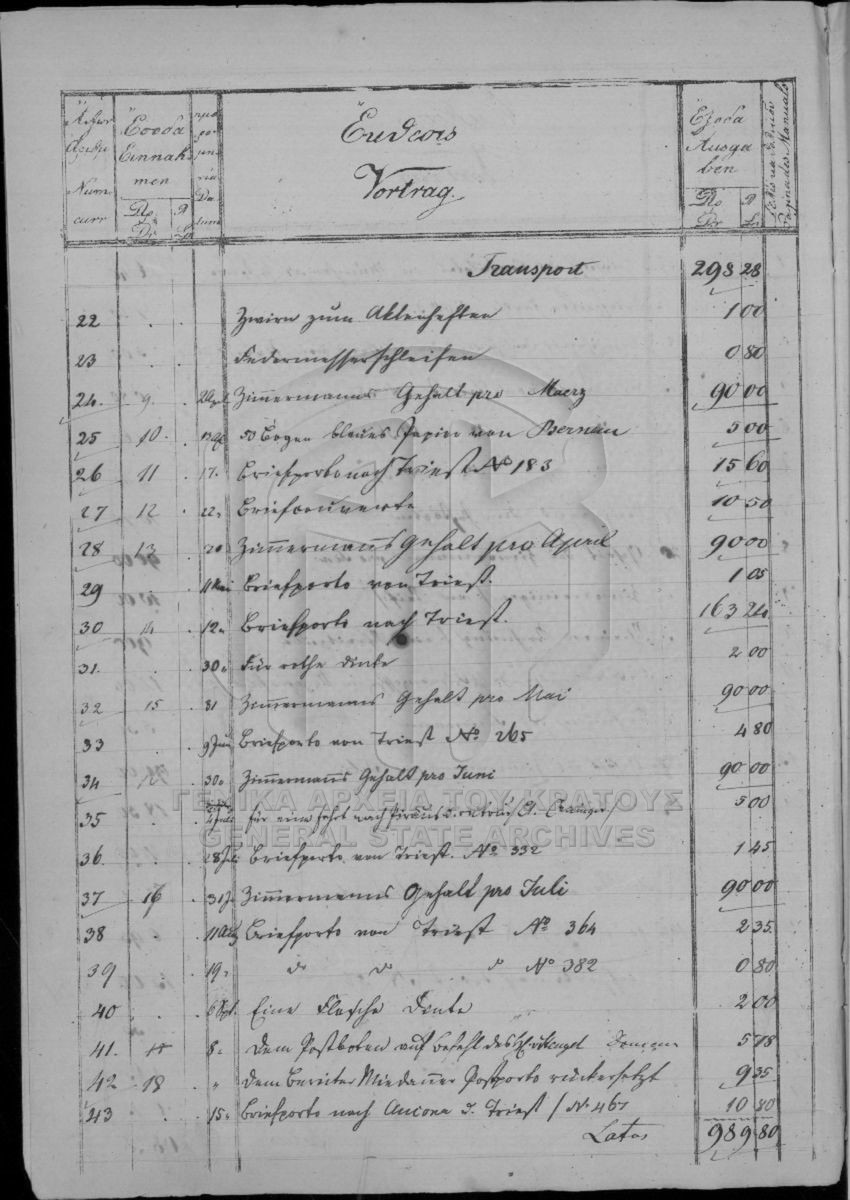 Einnah
men
Num
curr
Vortrag
Ausga
ben
Transport 298 28
22 Zwirn zum Aktenheften 1 00
23 Federmesserschleifen 0 80
24 9 Zimmermanns Gehalt pro Maerz 90 00
25 10 50 Bogen blaues Papier von Bernau 5 00
26 11 17 Briefporto nach Triest No 183 15 60
27 12 22 Briefcouverte 10 50
28 13 Zimmermanns Gehalt pro April 90 00
29 11 Mai Briefporto von Triest. 1 05
30 14 12 Briefporto nach Triest. 163 24
31 30 Für rothe Dinte 2 00
32 15 31 Zimmermanns Gehalt pro Mai 90 00
33 9 Juni Briefporto von Triest No 265 4 80
34 30 Zimmermanns Gehalt pro Juni 90 00
ΓΕΝΙΚΑ ΑΡΧΕΙΑ ΤΟΥ ΚΡΑΤΟΥΣ
35 Juli für eine Fahrt nach Piräus 5 00
GENERAL STATE ARCHIVES
36 28 Juli Briefporto von Triest. No 332 1 45
37 16 31 J. Zimmermanns Gehalt pro Juli 90 00
38 11 Aug Briefporto von Triest No 364 2 35
39 19 do do do No 382 0 80
40 6 Spt. Eine Flasche Dinte 2 00
41 8 Dem Postboten auf Befehl des 5 78
42 18 " Dem Bereiter Postporto rückersetzt 9 35
43 15 Briefporto nach Ancona u. Triest / No 467 10 80
Latus 989 80